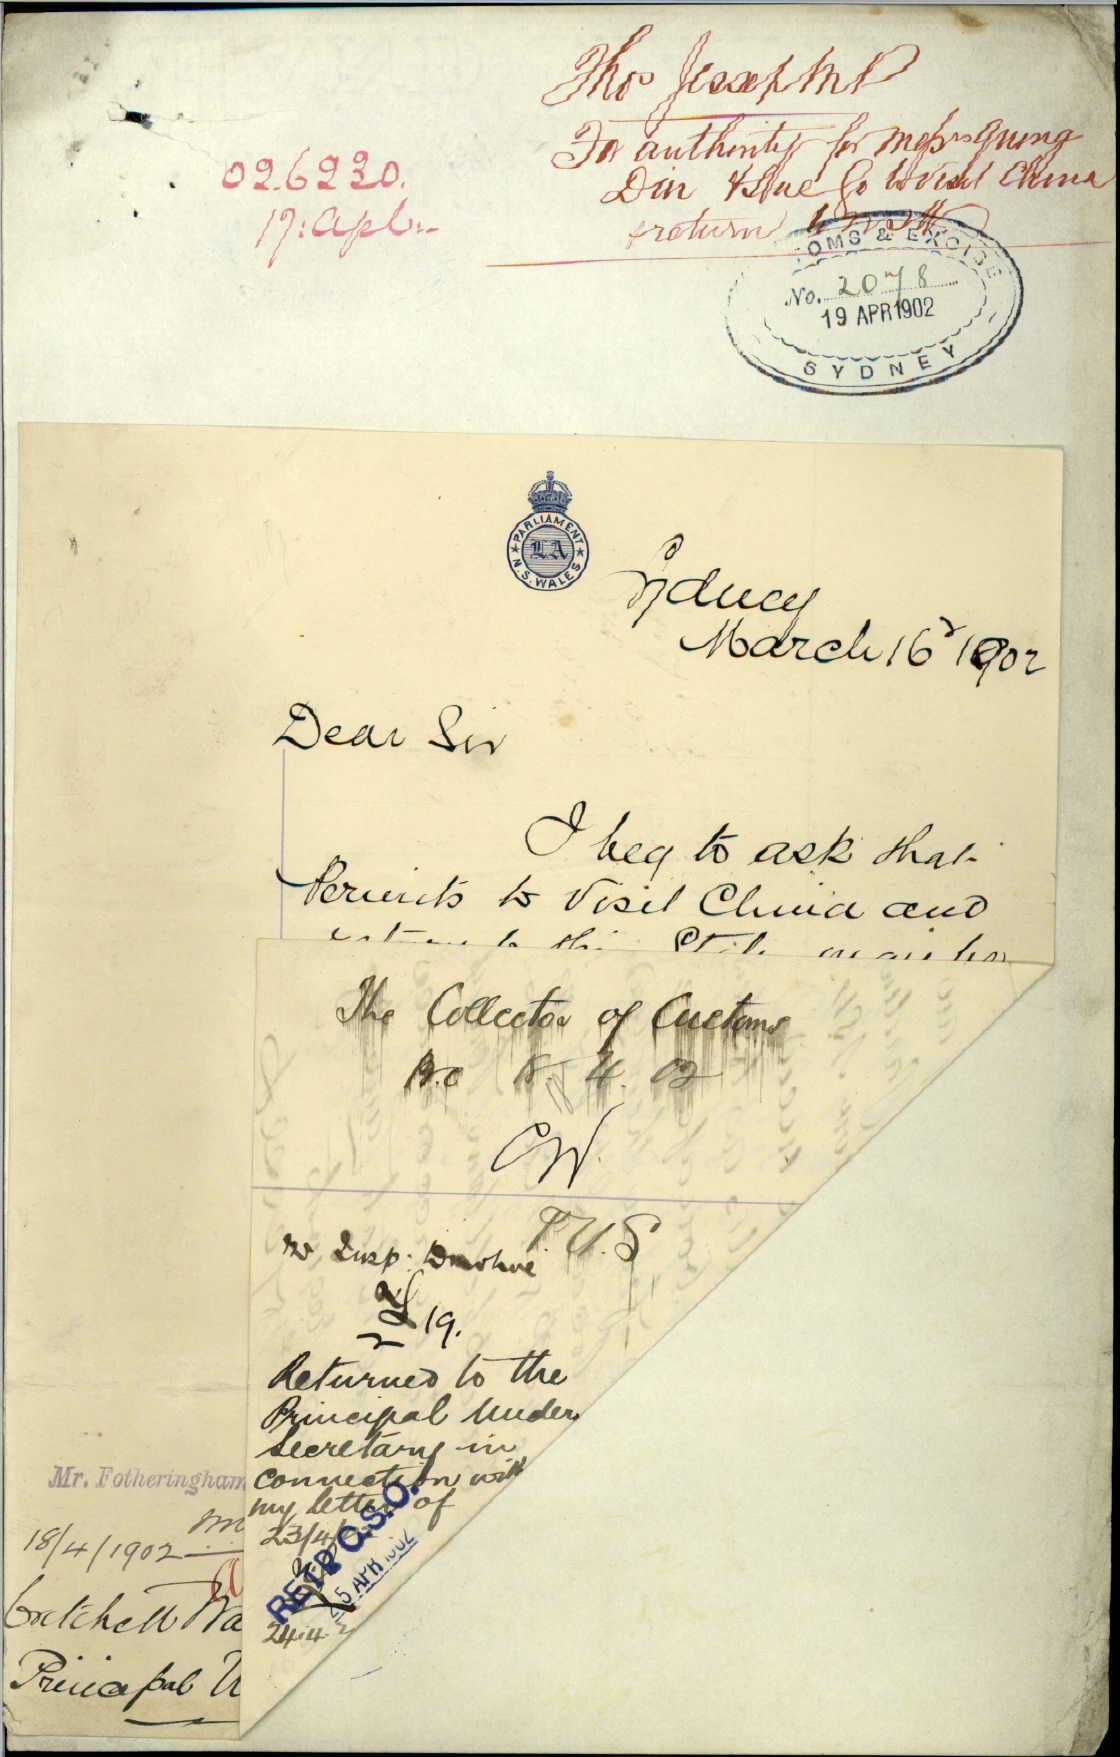 Thos Jessep M P
For authority for Messrs Quong
Din & Sue Go to visit China
& return
02.6230.
17: Apl:-
OMS & EXCISE
No. 2078
19 APR 1902
SYDNEY
PARLIAMENT
LA
N.S. WALES
Sydney
March 16 1902
Dear Sir
I beg to ask that
Permits to visit China and
return to this State may be
The Collector of Customs
B.C 18. 4. 02
CW.
P.U.S
Mr Insp: Donohoe
19.
Returned to the
Principal Under
Secretary in
connection with
my letter of
23/4/
RETD C.S.O.
25 APR 1902
24.4.2
Mr. Fotheringham
18/4/1902
Critchett Wa
Principal U